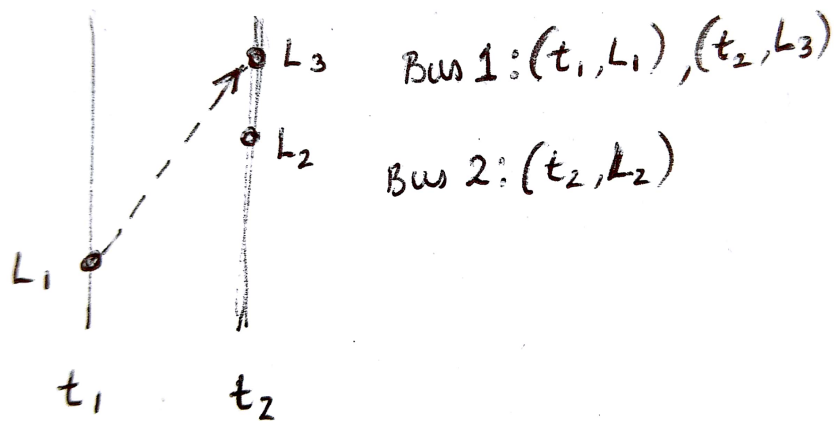 L₃
Bus 1: (t₁, L₁), (t₂, L₃)
L₂
Bus 2: (t₂, L₂)
L₁
t₁
t₂